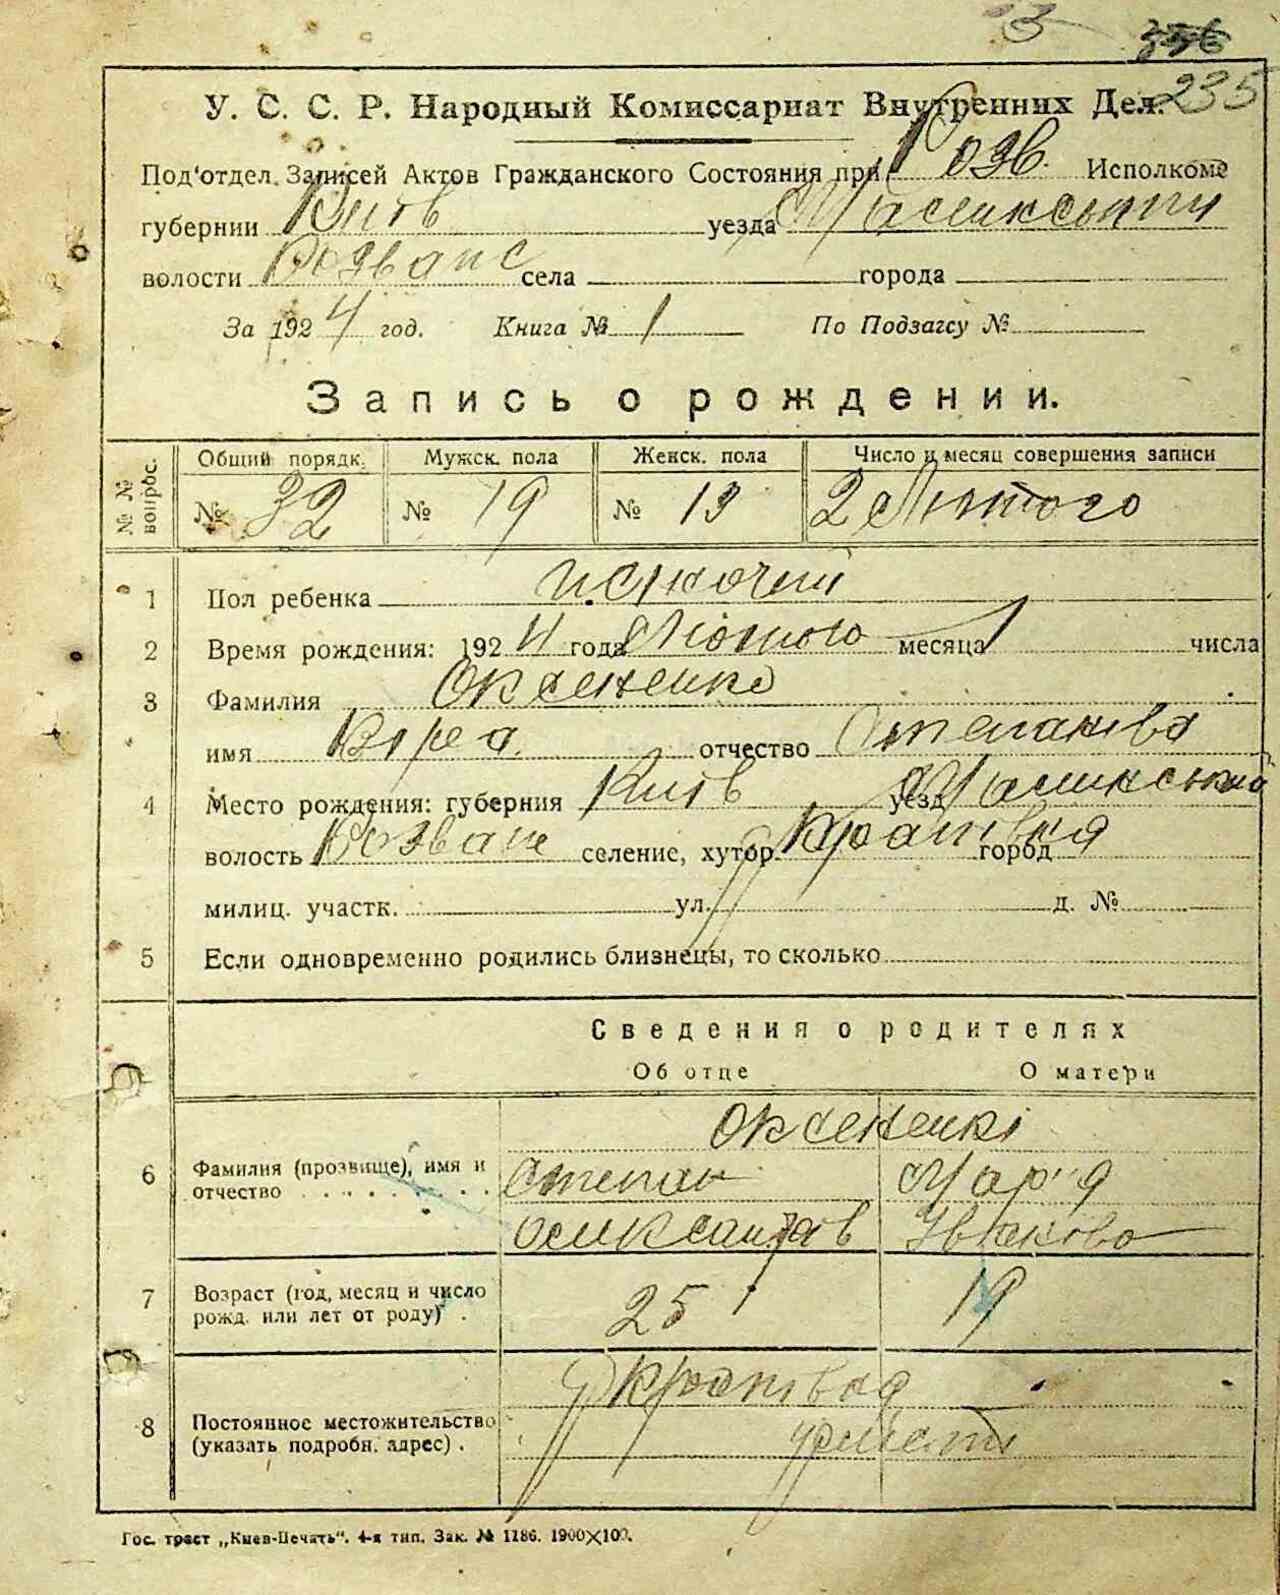 235
У. С. С. Р. Народный Комиссариат Внутренних Дел.
Под'отдел Записей Актов Гражданского Состояния при Розв. Исполкоме
губернии Київ уезда
волости Розваж села города
За 1924 год. Книга № 1 По Подзагсу №
Запись о рождении.
№ № вопрос. Общий порядк. Мужск. пола Женск. пола Число и месяц совершения записи
№ 32 № 19 № 13 2 Лютого
1 Пол ребенка жіночий
2 Время рождения: 1924 года Лютого месяца 1 числа
3 Фамилия Оксененко
имя Віра отчество Степанівна
4 Место рождения: губерния Київ уезд
волость Розваж селение, хутор город
милиц. участк. ул. д. №
5 Если одновременно родились близнецы, то сколько
Сведения о родителях
Об отце О матери
Оксененкі
6 Фамилия (прозвище), имя и Степан Марія
отчество Олександрів
7 Возраст (год, месяц и число 25 19
рожд. или лет от роду)
8 Постоянное местожительство
(указать подробн. адрес)
Гос. трест „Киев-Печать". 4-я тип. Зак. № 1186. 1900×100.